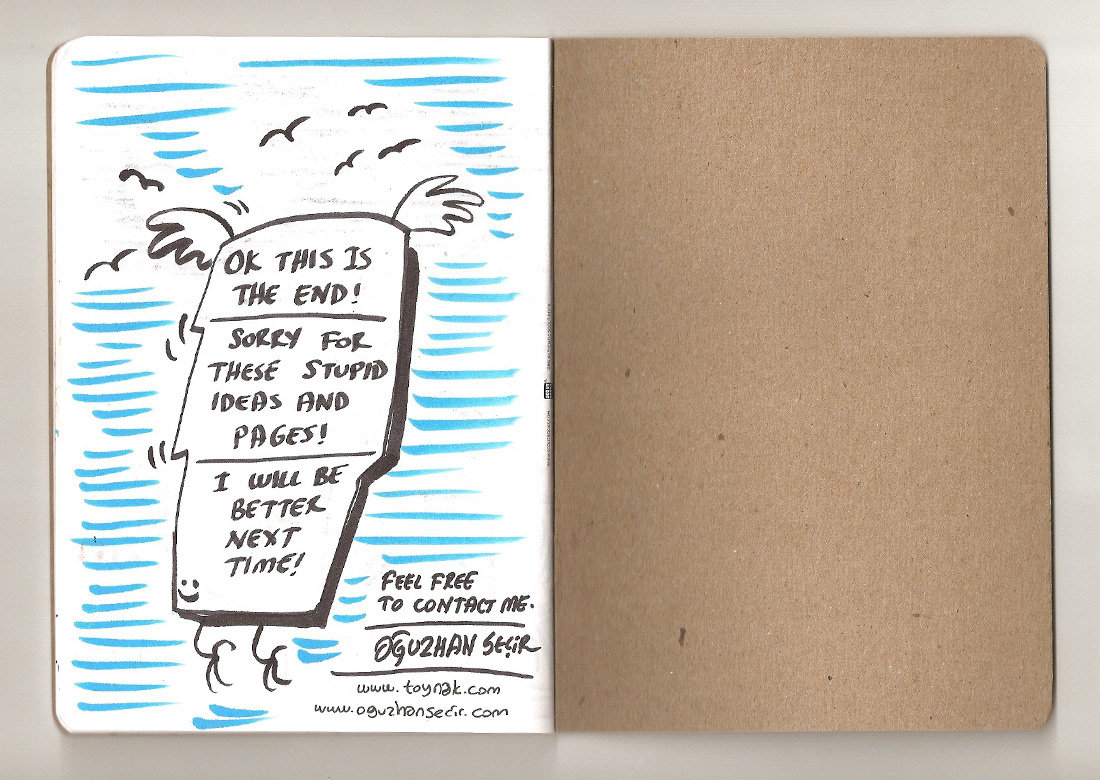 OK THIS IS
THE END!
SORRY FOR
THESE STUPID
IDEAS AND
PAGES!
I WILL BE
BETTER
NEXT
TIME!
FEEL FREE
TO CONTACT ME.
OĞUZHAN SEÇİR
www.toynak.com
www.oguzhansecir.com